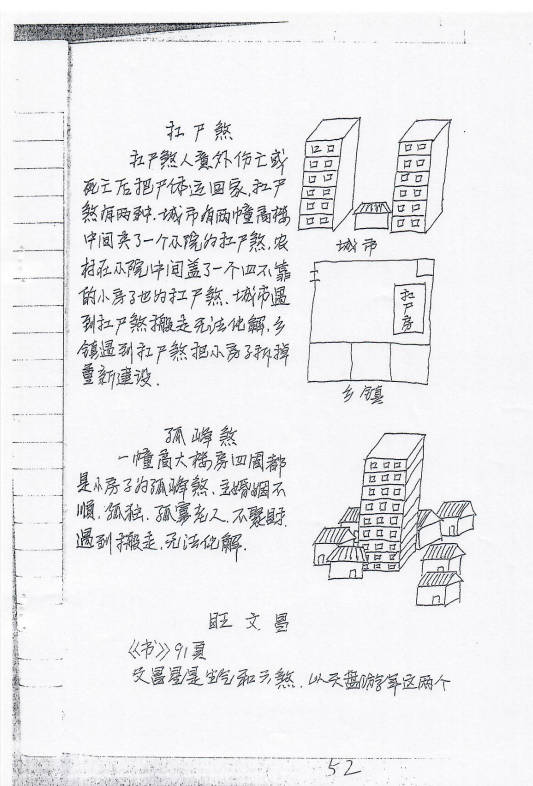 扛尸煞
扛尸煞人意外伤亡或
死亡后把尸体运回家,扛尸
煞有两种,城市有两幢高楼
中间夹了一个小院为扛尸煞,农
村在小院中间盖了一个四不靠
的小房子也为扛尸煞,城市遇
到扛尸煞搬走无法化解,乡
镇遇到扛尸煞把小房子拆掉
重新建设.
城市
扛尸房
乡镇
孤峰煞
一幢高大楼房四周都
是小房子为孤峰煞,主婚姻不
顺,孤独,孤寡老人,不聚财,
遇到搬走,无法化解.
旺文昌
《书》91页
文昌星是生气和六煞,以天盘游年这两个
52